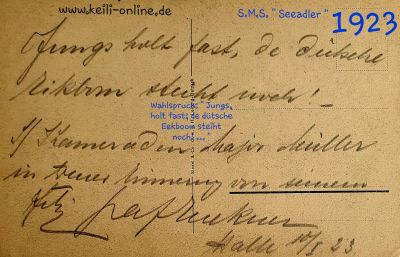 www.keili-online.de
S.M.S. "Seeadler"
1923
Jungs holt fast, de dütsche
Eikbom steiht noch!
Wahlspruch: " Jungs,
holt fast; de dütsche
Eekboom steiht
noch....."
S/ Kameraden Major Müller
in treuer Erinnerung von seinem
Felix Graf Luckner
Halle 10/I 23.